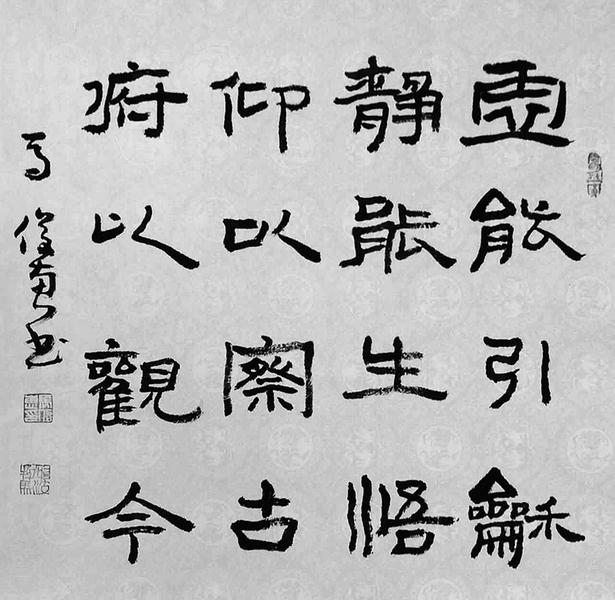 虛能引龢
靜能生悟
仰以察古
俯以觀今
马俊书